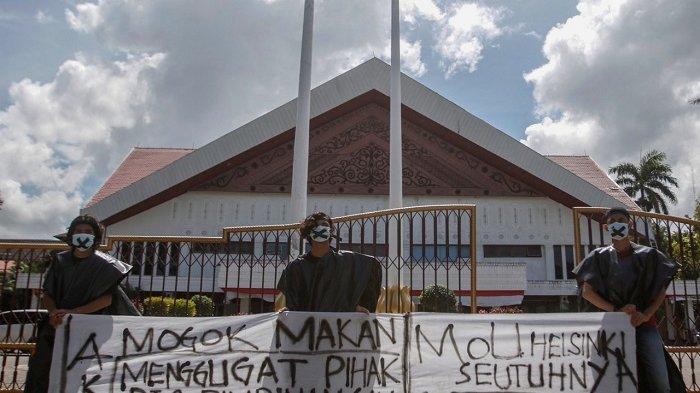 AKSI
MOGOK MAKAN
MENGGUGAT PIHAK
MoU HELSINKI
SEUTUHNYA